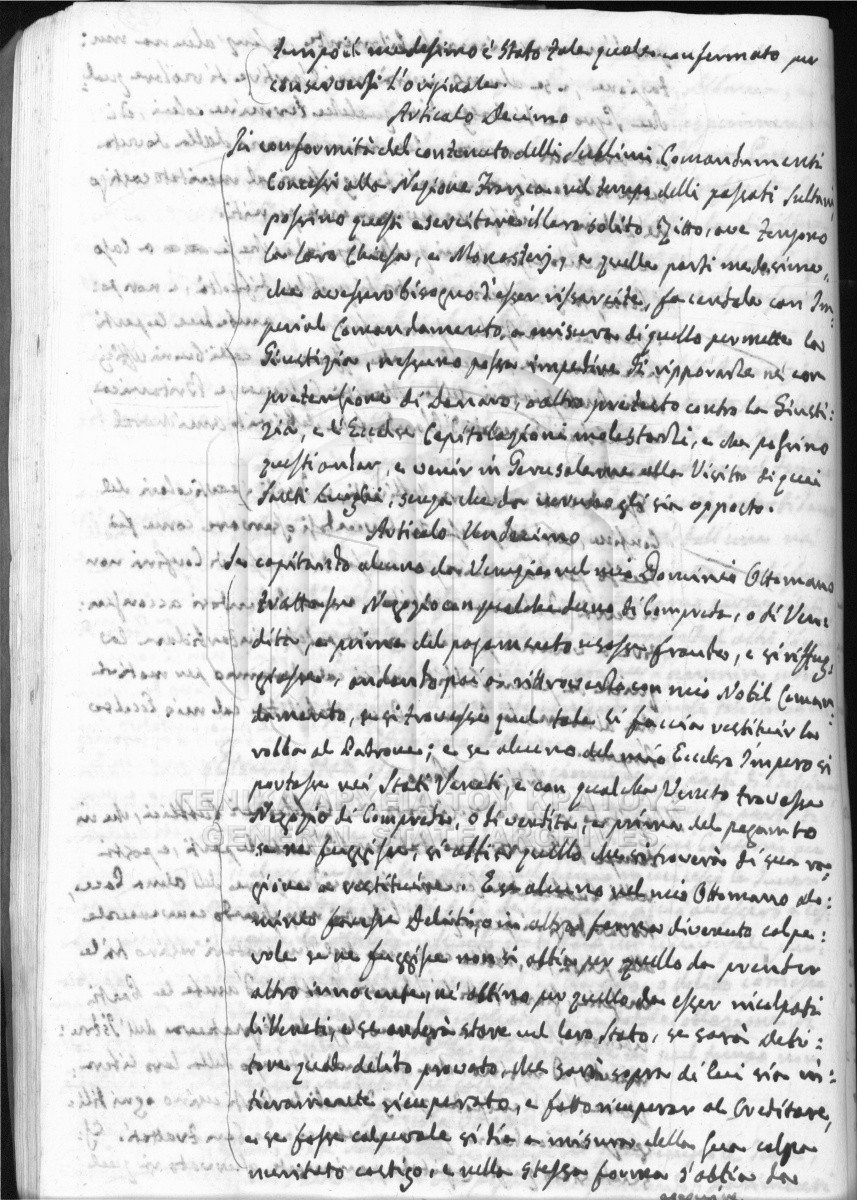 tempo il medesimo è stato tale quale confermato per
conservarsi l'originale
Articolo Decimo
In conformità del contenuto delli Sublimi Comandamenti
Concessi alla Nazione Franca nel tempo delli passati Sultani,
possino questi esercitare il loro solito Ritto, ove tengono
la loro Chiesa, e Monasterj, e quelle parti medesime
che avessero bisogno d'esser risarcite, facendola con Im=
perial Comandamento, a misura di quello permette la
Giustizia, nessuno possa impedire di ripporarle nè con
pretensione di denaro, o altro pretesto contro la Giusti:
zia, e l'Eccelse Capitolazioni molestarli, e che possino
questi andar, e venir in Gerusalemme alla Visita di quei
Santi Luoghi, senza che da nessuno gli sia opposto.
Articolo Undecimo
Se capitasse alcuno da Venezia nel mio Dominio Ottomano
trattasse Negozio con qualcheduno di Compreda, o di Ven:
dita, e prima del pagamento usasse fraude, e si riffug:
giasse, andando poi a rittrovarlo con mio Nobil Coman:
damento, se si trovasse quel tale si faccia restituir la
robba al Patrone; e se alcuno del mio Eccelso Impero si
portasse nei Stati Veneti, e con qualche Veneto trovasse
ΓΕΝΙΚΑ ΑΡΧΕΙΑ ΤΟΥ ΚΡΑΤΟΥΣ
GENERAL STATE ARCHIVES
Negozio di Compreda, o di vendita, e prima del pagamto
se ne fuggisse, si abbia quello che si troverà di sua ra:
gione a restituire. E se alcuno nel mio Ottomano do:
minio facesse Debito, o in altra forma divenuto colpe:
vole se ne fuggisse non si abbia per quello da prender
altro innocente, nè abbino per quello da esser incolpati
di Veneti, e se anderà stare nel loro Stato, se sarà debi:
tore quel debito provato, che sarà sopra di lui sia in:
tieramente ricuperato, e fatto ricuperar al Creditore,
e se fosse colpevole si dia a misura della sua colpa
meritato castigo, e nella stessa forma s'abbia da